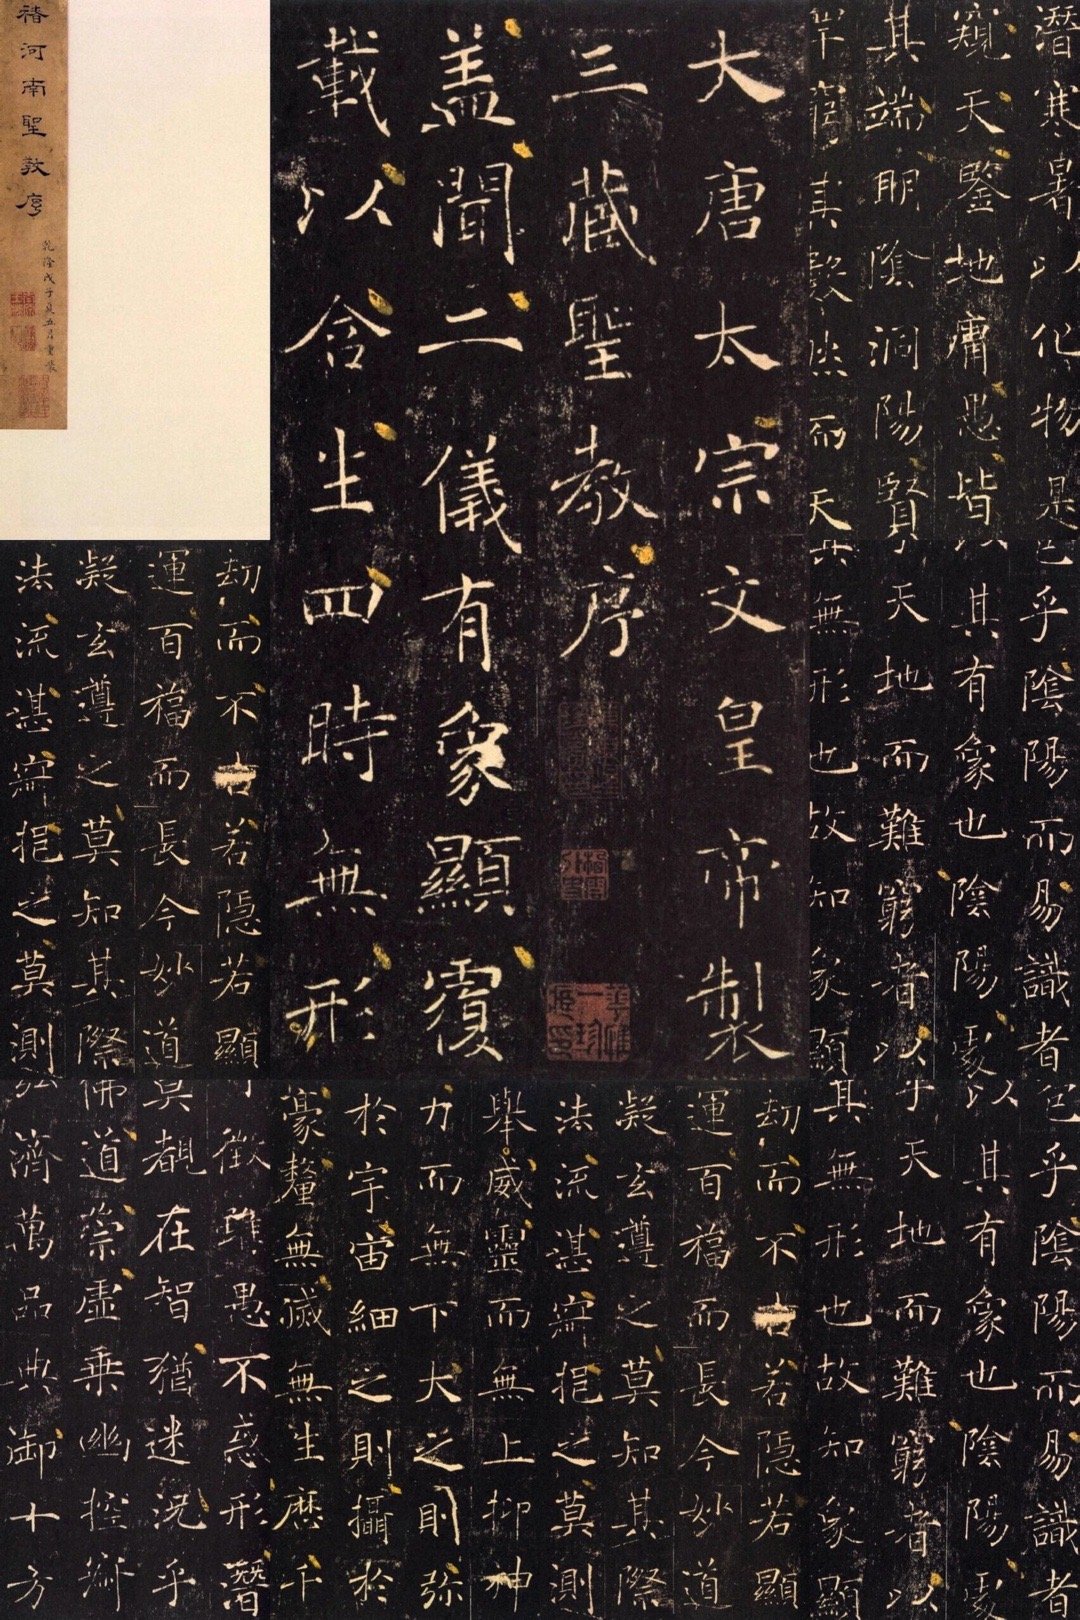 褚河南聖教序
乾隆戊子夏五月重裝
大唐太宗文皇帝製
三藏聖教序
蓋聞二儀有象顯覆
載以含生四時無形
潛寒暑以化物是
窺天鑒地庸愚皆
其端明陰洞陽賢
罕窮其數然而天
包乎陰陽而易識者
以其有象也陰陽處
乎天地而難窮者以
其無形也故知象顯
劫而不古若隱若顯
運百福而長今妙道
凝玄遵之莫知其際
法流湛寂挹之莫測
包乎陰陽而易識者
以其有象也陰陽處
乎天地而難窮者以
其無形也故知象顯
劫而不古若隱若顯
運百福而長今妙道
凝玄遵之莫知其際
法流湛寂挹之莫測
舉威靈而無上抑神
力而無下大之則彌
於宇宙細之則攝於
豪釐無滅無生歷千
可徵雖愚不惑形潛
莫覩在智猶迷況乎
佛道崇虛乘幽控寂
弘濟萬品典御十方